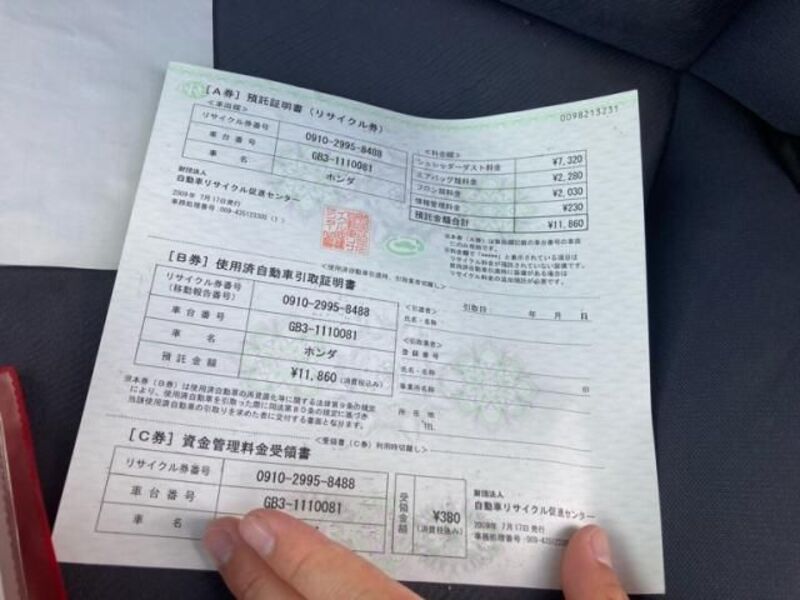 [A券] 預託証明書(リサイクル券)
0098213231
<車両欄>
リサイクル券番号 0910-2995-8488
車台番号 GB3-1110081
車名 ホンダ
<料金欄>
シュレッダーダスト料金 ¥7,320
エアバッグ類料金 ¥2,280
フロン類料金 ¥2,030
情報管理料金 ¥230
預託金額合計 ¥11,860
財団法人
自動車リサイクル促進センター
2009年 7月17日発行
[B券] 使用済自動車引取証明書
リサイクル券番号
(移動報告番号) 0910-2995-8488
車台番号 GB3-1110081
車名 ホンダ
預託金額 ¥11,860 (消費税込み)
<引渡者> 引取日 年 月 日
氏名・名称
<引取業者>
登録番号
氏名・名称
事業所名称 印
所在地
TEL
当該使用済自動車の引取りを求めた者に交付する書面となります。
[C券] 資金管理料金受領書
<受領書(C券)利用時切離し>
リサイクル券番号 0910-2995-8488
車台番号 GB3-1110081
車名
受領金額 ¥380
(消費税込み)
財団法人
自動車リサイクル促進センター
2009年 7月17日発行